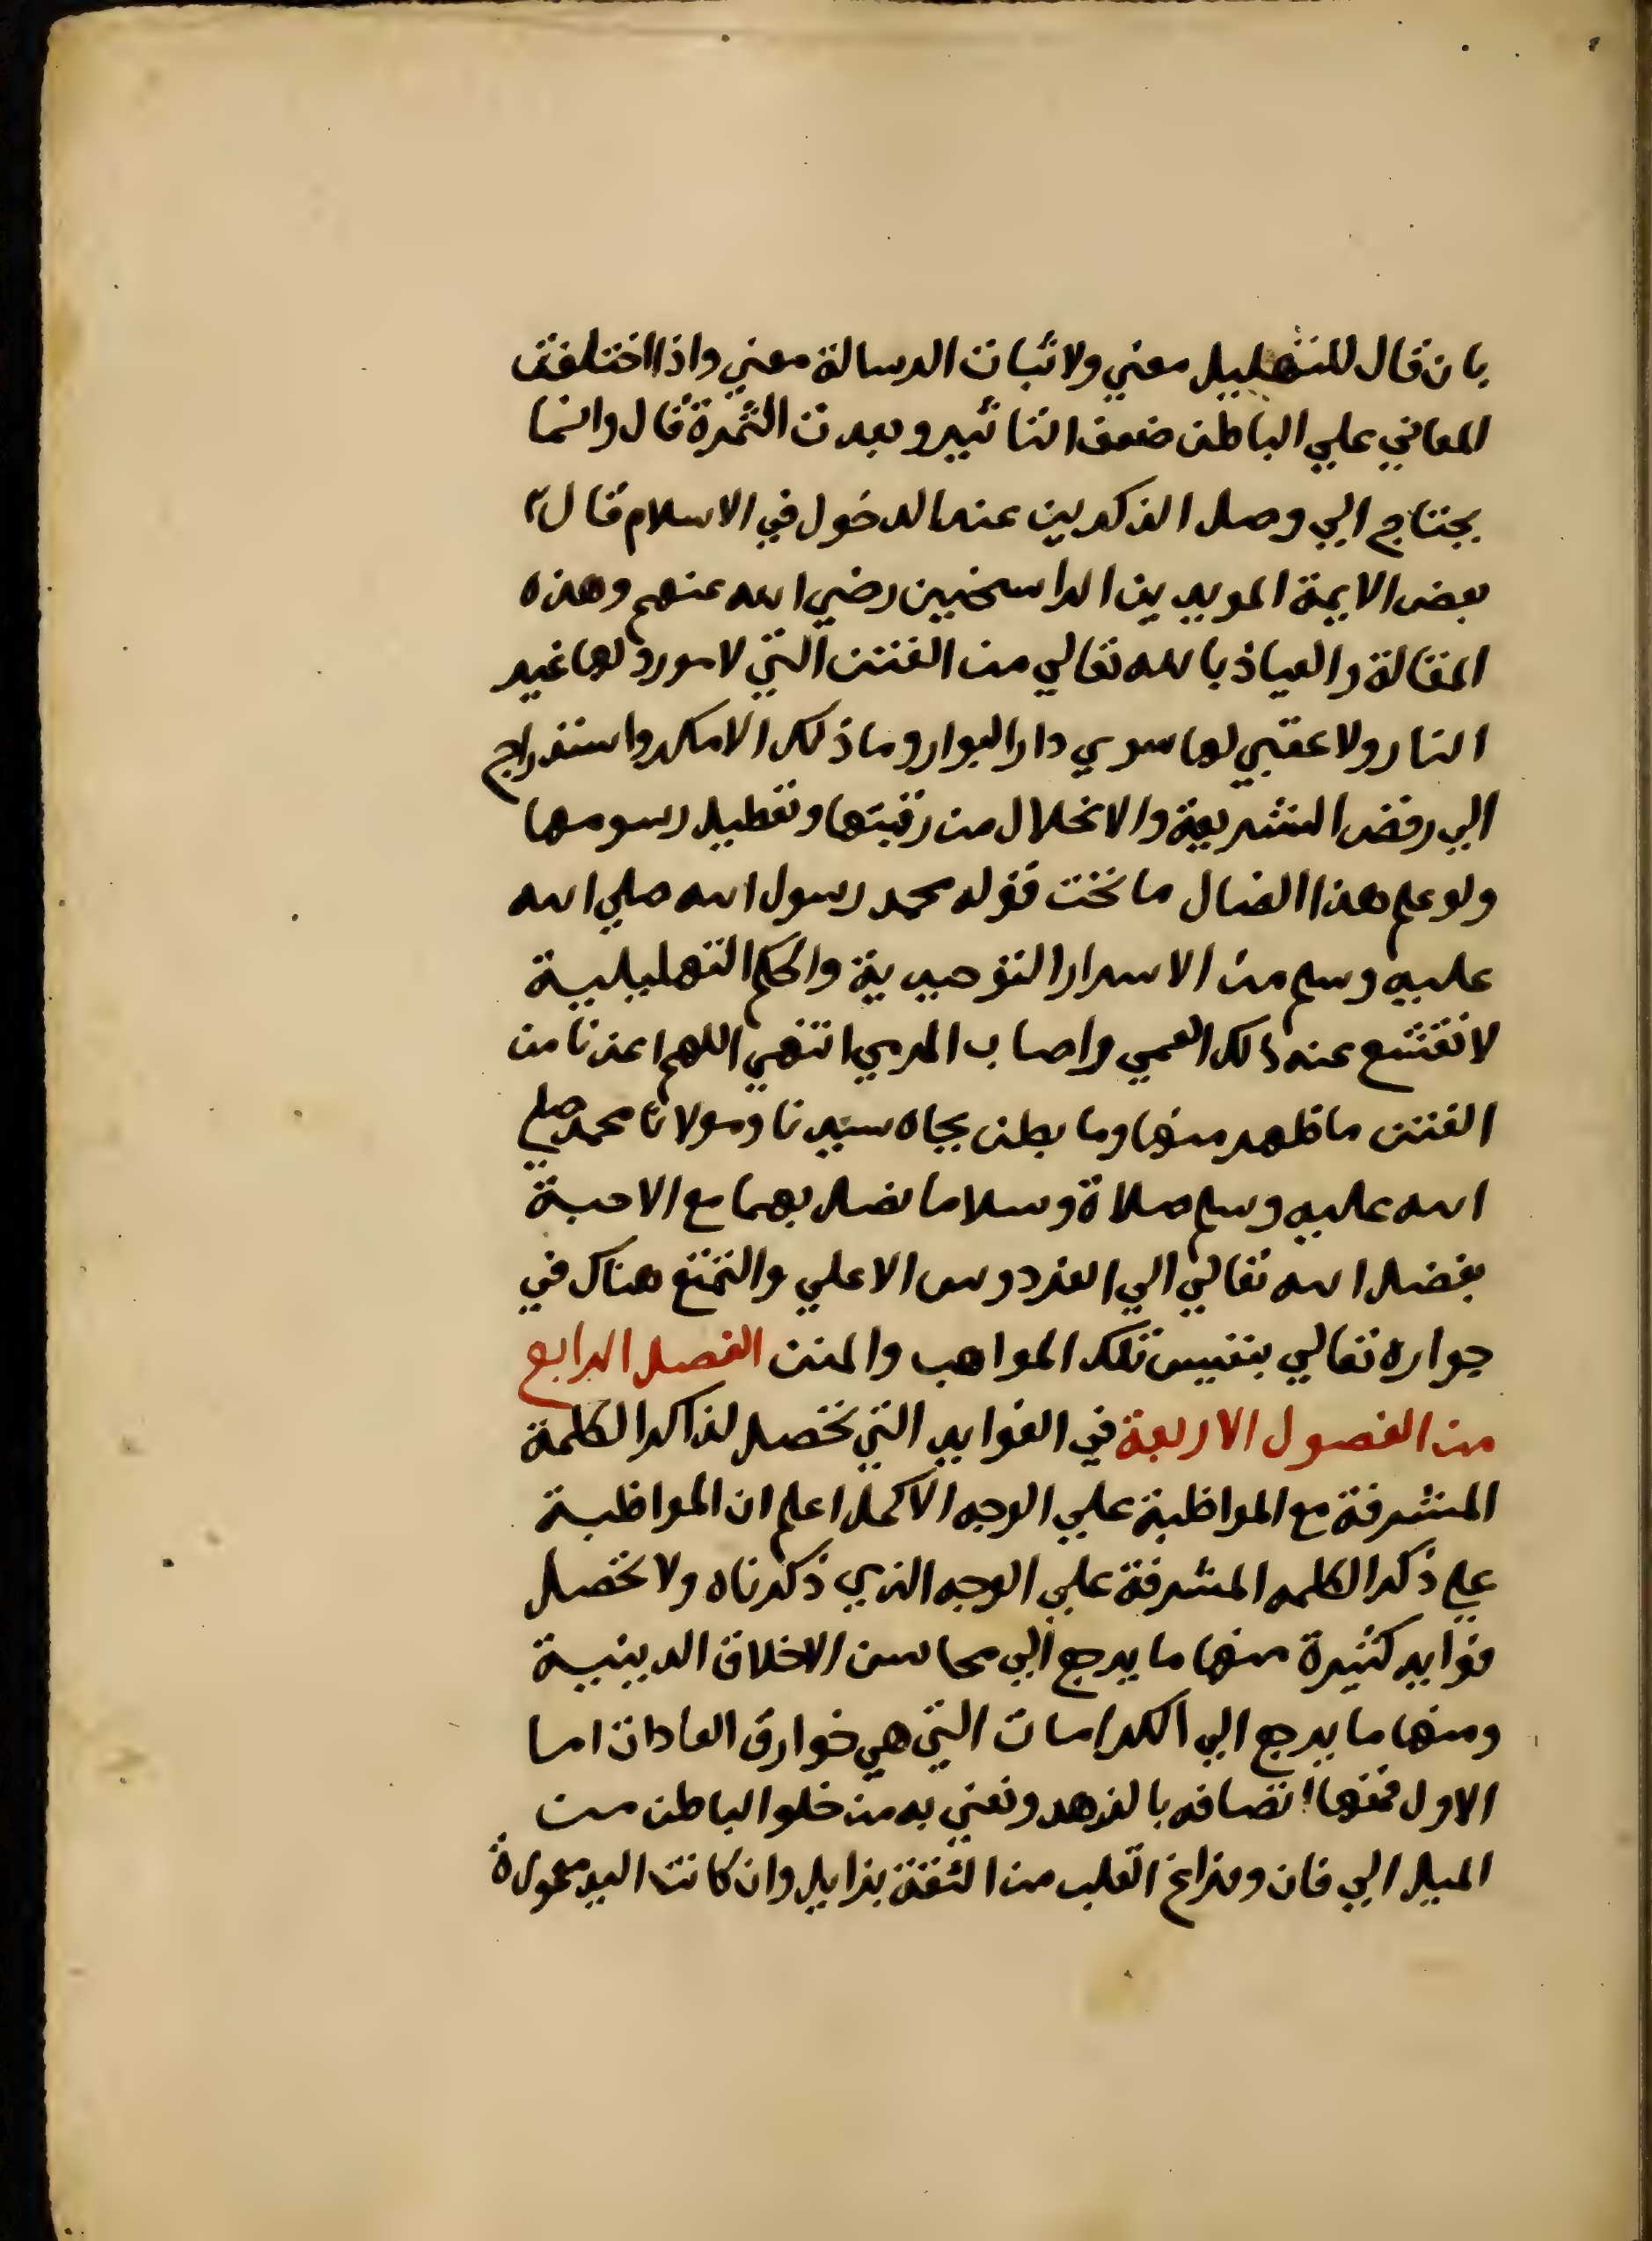 بان قال للتهليل معني ولاثبات الرسالة معني واذا اختلفت
المعاني علي الباطن ضعف التاثير وبعدت الثمرة قال وانما
يحتاج الي وصل الذكرين عند الدخول في الاسلام قال
بعض الايمة المويدين الراسخين رضي الله عنهم وهذه
المقالة والعياذ بالله تعالي من الفتن التي لا مورد لها غير
النار ولا عقبي لها سوي دار البوار وما ذلك الا مكر واستدراج
الي رفض الشريعة والانحلال من رقبتها وتعطيل رسومها
ولو علم هذا الضال ما تحت قوله محمد رسول الله صلي الله
عليه وسلم من الاسرار التوحيدية والحكم التهليلية
لانقشع عنه ذلك العمي واصاب المرمي انتهي اللهم اعذنا من
الفتن ما ظهر منها وما بطن بجاه سيدنا ومولانا محمد صلي
الله عليه وسلم صلاة وسلاما نصل بهما مع الاحبة
بفضل الله تعالي الي الفردوس الاعلي والتمتع هناك في
جواره تعالي بنفيس تلك المواهب والمنن الفصل الرابع
من الفصول الاربعة في الفوايد التي تحصل لذاكر الكلمة
المشرفة مع المواظبة علي الوجه الاكمل اعلم ان المواظبة
علي ذكر الكلمه المشرفة علي الوجه الذي ذكرناه ولا تحصل
فوايد كثيرة منها ما يرجع الي محاسن الاخلاق الدينية
ومنها ما يرجع الي الكرامات التي هي خوارق العادات اما
الاول فمنها اتصافه بالزهد ونعني به من خلو الباطن من
الميل الي فان وفراغ القلب من الثقة بزايل وان كانت اليد معمورة